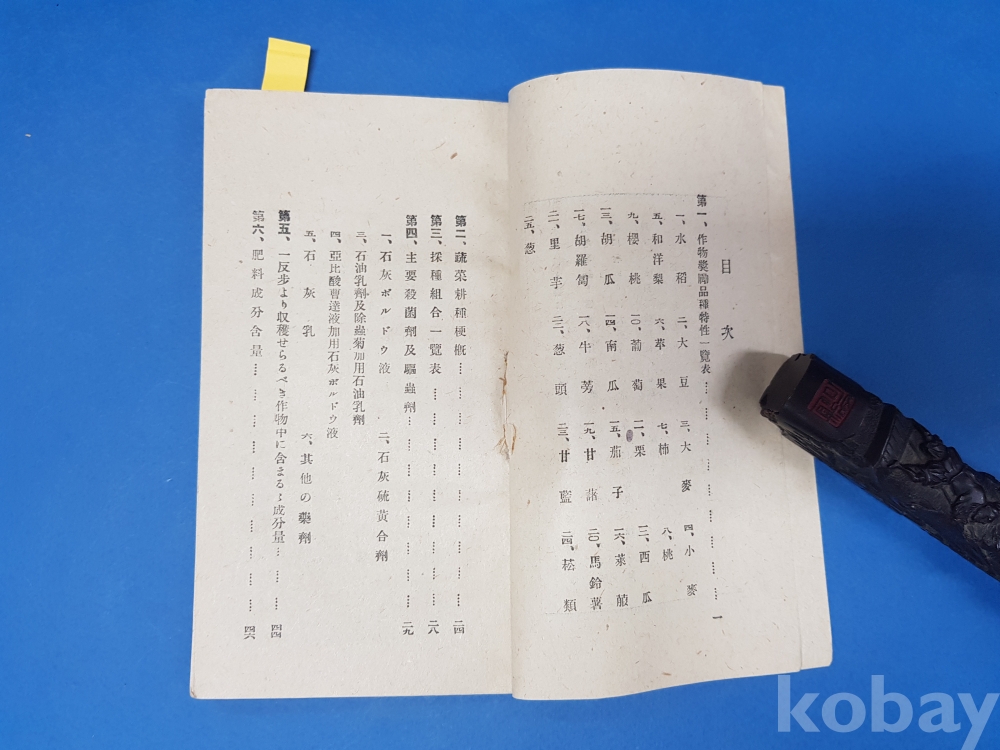 目次
第一、作物奬勵品種特性一覽表………………一
一、水稻 二、大豆 三、大麥 四、小麥
五、和洋梨 六、苹果 七、柿 八、桃
九、櫻桃 一〇、葡萄 一一、栗 一二、西瓜
一三、胡瓜 一四、南瓜 一五、茄子 一六、萊菔
一七、胡羅蔔 一八、牛蒡 一九、甘藷 二〇、馬鈴薯
二一、里芋 二二、葱頭 二三、甘藍 二四、菘類
二五、葱
第二、蔬菜耕種梗概………………二四
第三、採種組合一覽表………………二八
第四、主要殺菌劑及驅蟲劑………………二九
一、石灰ボルドウ液 二、石灰硫黄合劑
三、石油乳劑及除蟲菊加用石油乳劑
四、亞比酸曹達液加用石灰ボルドウ液
五、石灰乳 六、其他の藥劑
第五、一反歩より収穫せらるべき作物中に含まるゝ成分量………四四
第六、肥料成分含量………………四六
kobay